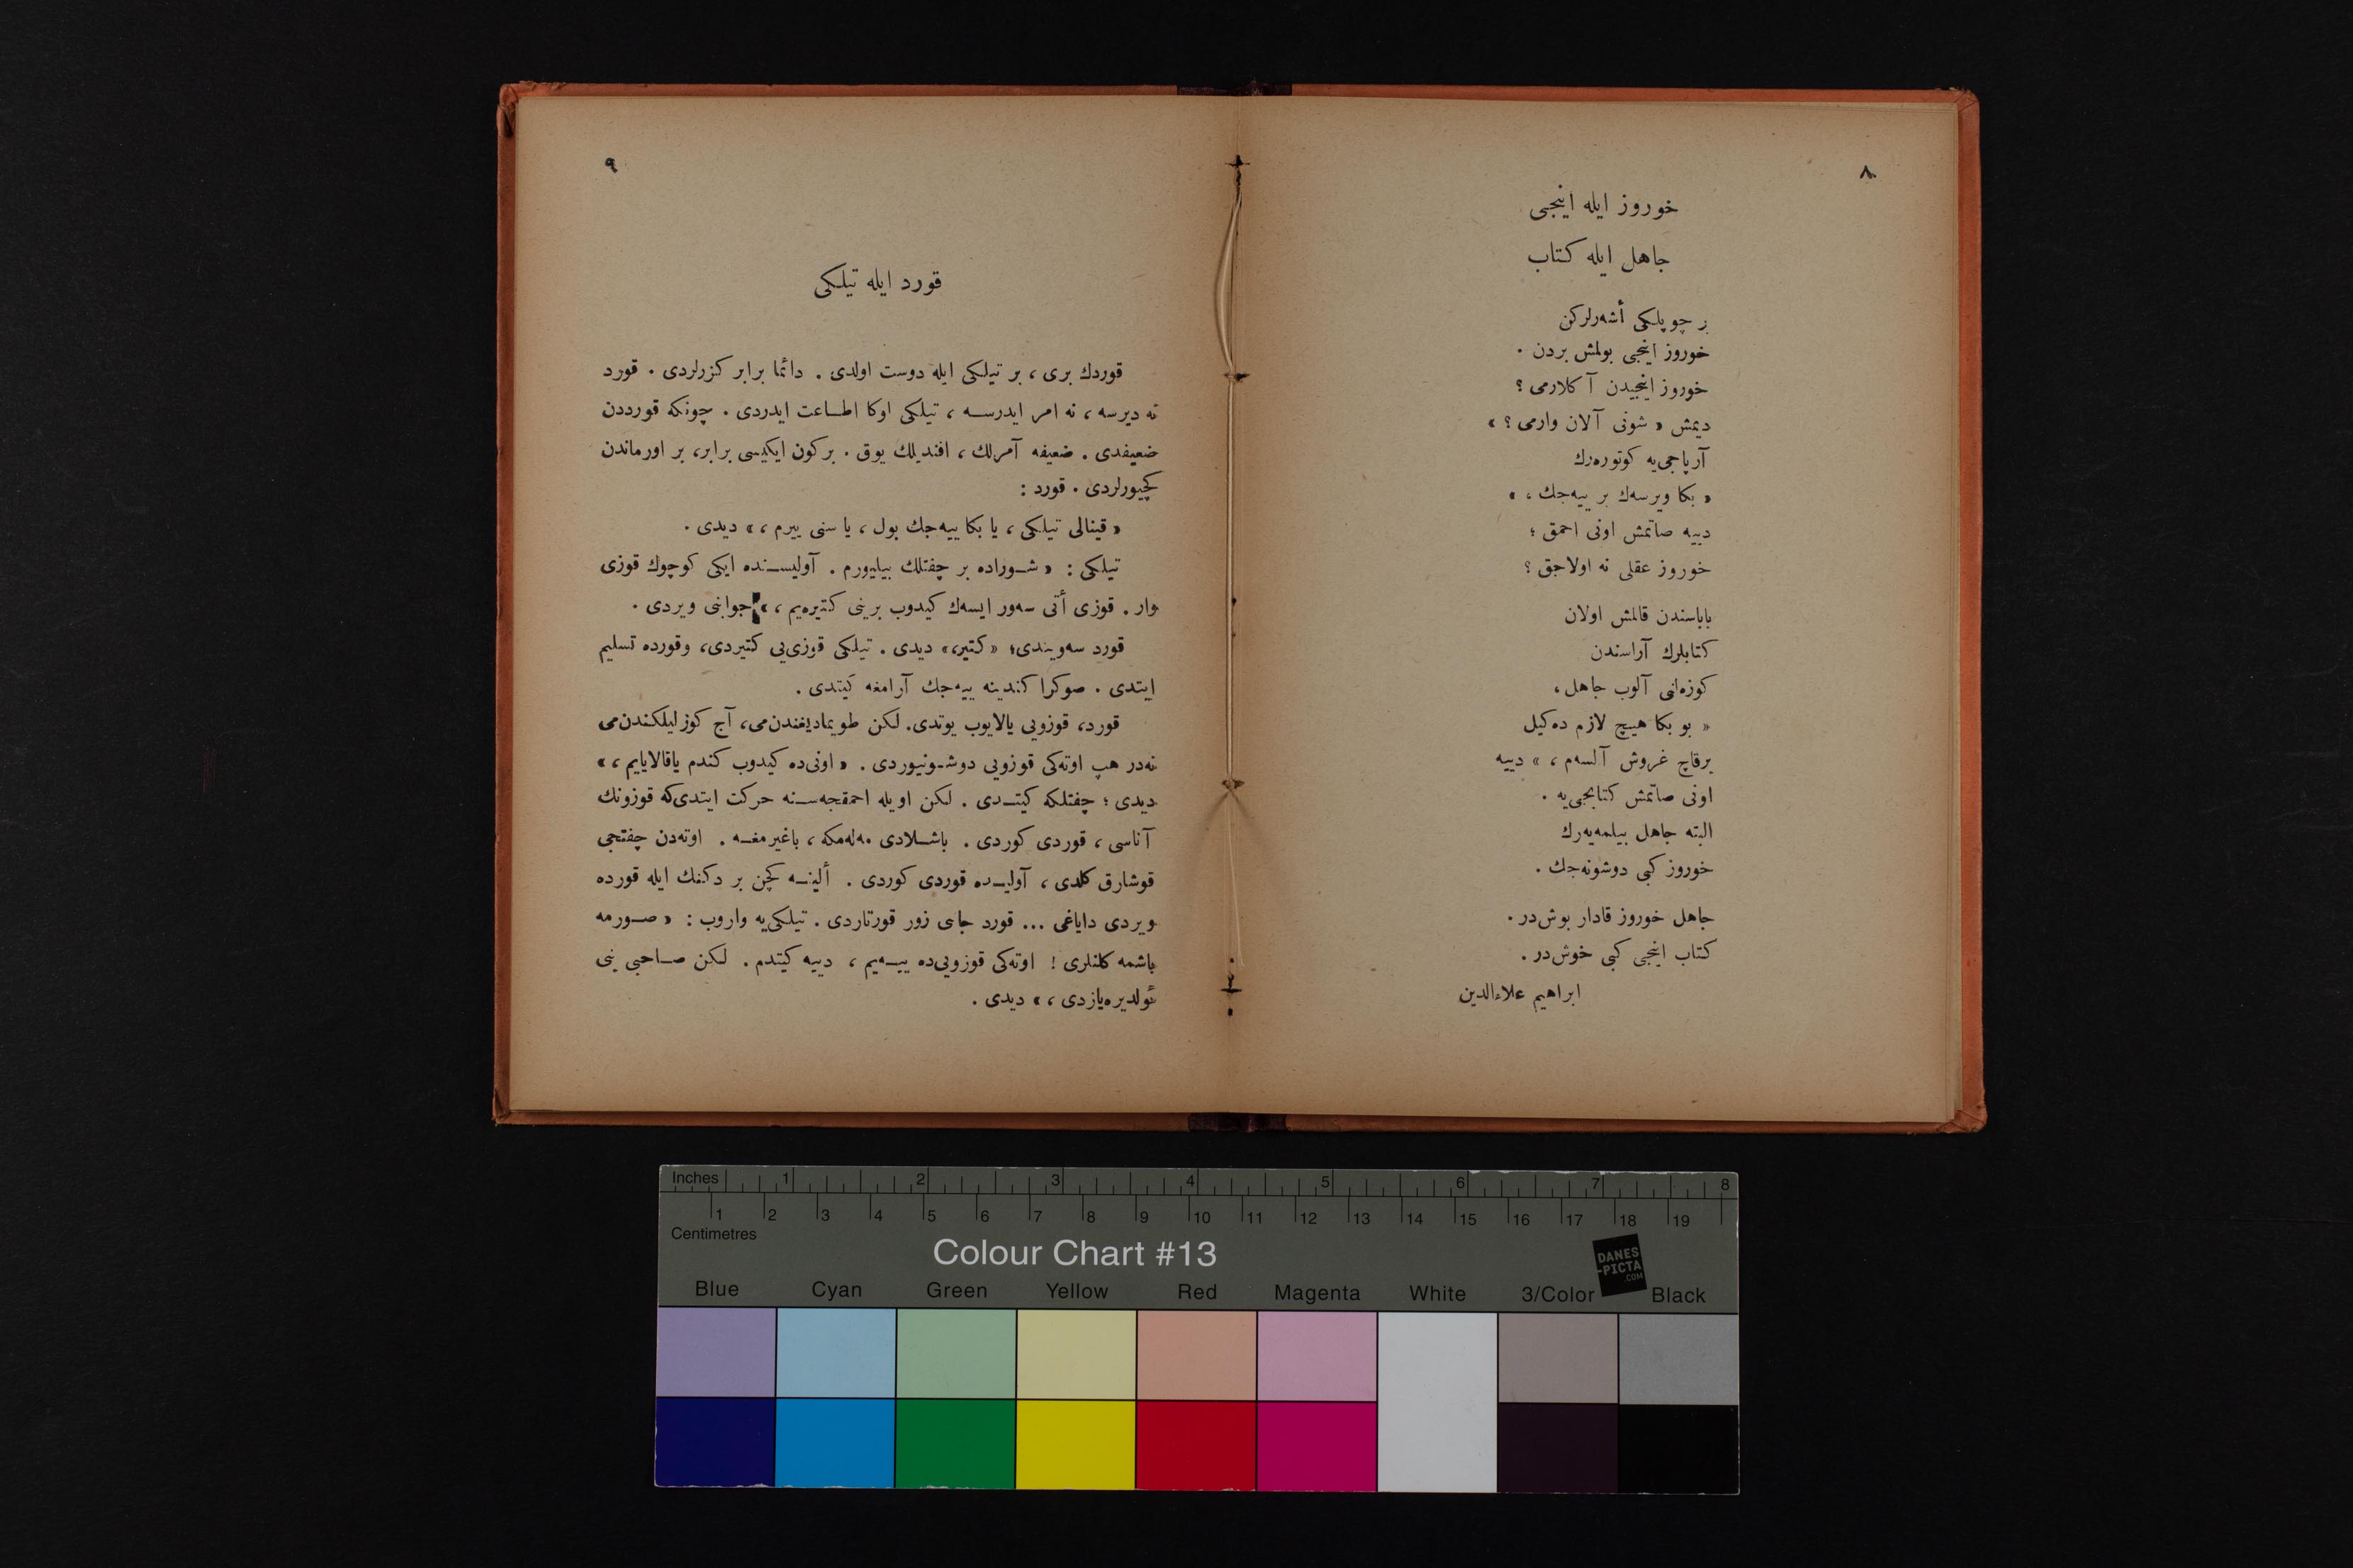 ٨
خوروز ایله اینجی
جاهل ایله كتاب
بر چوپلكی أشه‌رلركن
خوروز اینجی بولمش بردن .
خوروز اینجیدن آكلارمی ؟
دیمش « شونی آلان وارمی ؟ »
آرپاجی‌یه كوتوره‌رك
« بكا ویرسه‌ك بر ییه‌جك ، »
دییه صاتمش اونی احمق ؛
خوروز عقلی نه اولاجق ؟
باباسندن قالمش اولان
كتابلرك آراسندن
كوزه‌لنی آلوب جاهل ،
« بو بكا هیچ لازم ده‌كیل
برقاچ غروش آلسه‌م ، » دییه
اونی صاتمش كتابجی‌یه .
البته جاهل بیلمه‌یه‌رك
خوروز كبی دوشونه‌جك .
جاهل خوروز قادار بوش‌در .
كتاب اینجی كبی خوش‌در .
ابراهیم علاءالدین
٩
قورد ایله تیلكی
قوردك بری ، بر تیلكی ایله دوست اولدی . دائما برابر كزرلردی . قورد
نه دیرسه ، نه امر ایدرسه ، تیلكی اوكا اطاعت ایدردی . چونكه قورددن
ضعیفدی . ضعیفه آمرلك ، افندیلك یوق . بركون ایكیسی برابر، بر اورماندن
كچیورلردی . قورد :
« قینالی تیلكی ، یا بكا ییه‌جك بول ، یا سنی ییرم ، » دیدی .
تیلكی : « شوراده بر چفتلك بیلیورم . آولیسنده ایكی كوچوك قوزی
وار . قوزی أتی سه‌ور ایسه‌ك كیدوب برینی كتیره‌یم ، » جوابنی ویردی .
قورد سه‌ویندی؛ «كتیر،» دیدی . تیلكی قوزی‌یی كتیردی، وقورده تسلیم
ایتدی . صوكرا كندینه ییه‌جك آرامغه كیتدی .
قورد، قوزویی یالایوب یوتدی. لكن طویمادیغندن‌می، آج كوزلیلكندن‌می
نه‌در هپ اوته‌كی قوزویی دوشونیوردی . « اونی‌ده كیدوب كندم یاقالایایم ، »
دیدی ؛ چفتلكه كیتدی . لكن اویله احمقجه‌سنه حركت ایتدی‌كه قوزونك
آناسی ، قوردی كوردی . باشلادی مه‌له‌مكه ، باغیرمغه . اوته‌دن چفتجی
قوشارق كلدی ، آولیده قوردی كوردی . ألینه كچن بر دكنك ایله قورده
ویردی دایاغی ... قورد جانی زور قورتاردی . تیلكی‌یه واروب : « صورمه
باشمه كلنلری ! اوته‌كی قوزویی‌ده ییه‌یم ، دییه كیتدم . لكن صاحبی بنی
ئولدیره‌یازدی ، » دیدی .
Inches 1 2 3 4 5 6 7 8
1 2 3 4 5 6 7 8 9 10 11 12 13 14 15 16 17 18 19
Centimetres
Colour Chart #13
DANES
-PICTA
.COM
Blue Cyan Green Yellow Red Magenta White 3/Color Black